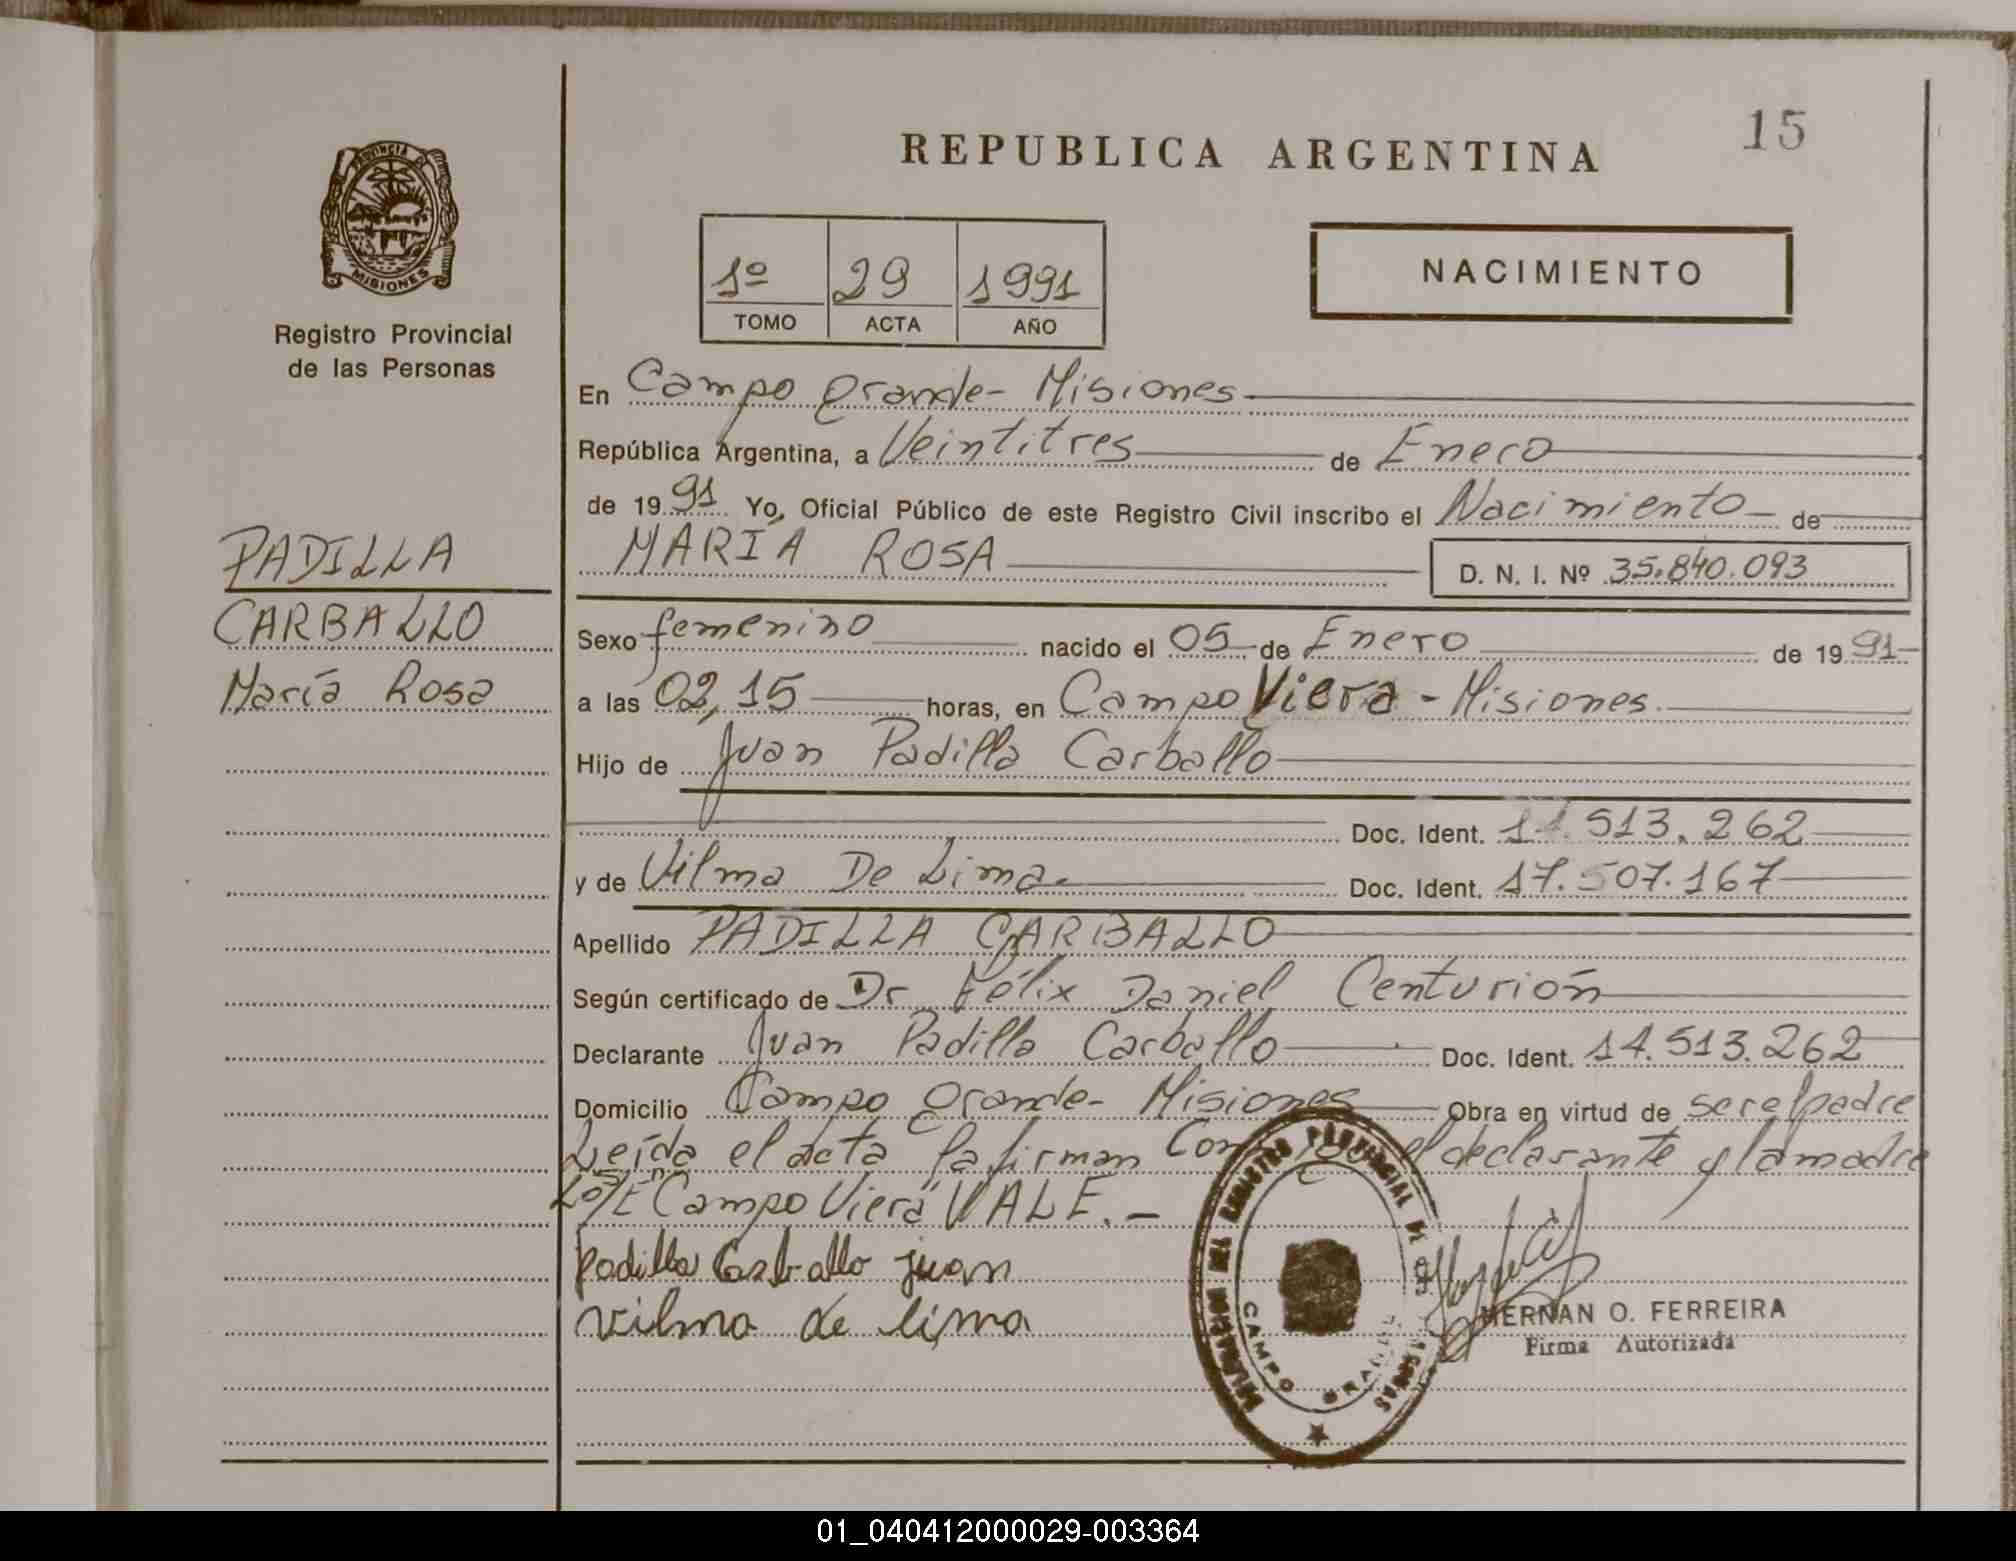 15
REPUBLICA ARGENTINA
PROVINCIA DE
MISIONES
Registro Provincial
de las Personas
1º 29 1991
TOMO ACTA AÑO
NACIMIENTO
En Campo Grande - Misiones
República Argentina, a Veintitres de Enero
de 1991 Yo, Oficial Público de este Registro Civil inscribo el Nacimiento de
MARÍA ROSA D. N. I. Nº 35.840.093
PADILLA
CARBALLO
María Rosa
Sexo femenino nacido el 05 de Enero de 1991
a las 02,15 horas, en Campo Viera - Misiones.
Hijo de Juan Padilla Carballo
Doc. Ident. 14.513.262
y de Vilma De Lima. Doc. Ident. 17.507.167
Apellido PADILLA CARBALLO
Según certificado de Dr Félix Daniel Centurión
Declarante Juan Padilla Carballo Doc. Ident. 14.513.262
Domicilio Campo Grande - Misiones Obra en virtud de ser el padre
Leída el acta la firman con el declarante y la madre
"Campo Viera" VALE. -
Padilla Carballo juan
vilma de lima
DELEGACION DEL REGISTRO PROVINCIAL DE LAS PERSONAS
CAMPO GRANDE
HERNAN O. FERREIRA
Firma Autorizada
01_040412000029-003364